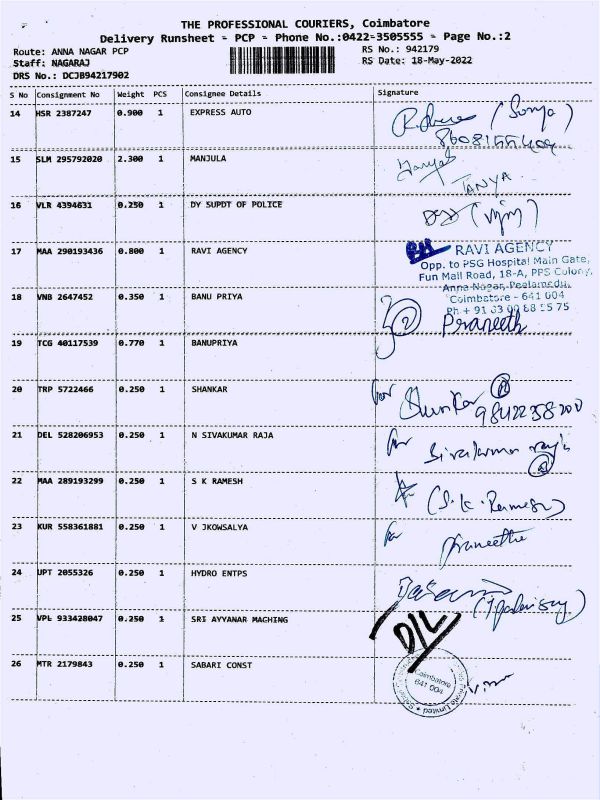 THE PROFESSIONAL COURIERS, Coimbatore
Delivery Runsheet - PCP - Phone No.:0422-3505555 - Page No.:2
Route: ANNA NAGAR PCP
RS No.: 942179
Staff: NAGARAJ
RS Date: 18-May-2022
DRS No.: DCJB94217902
S No Consignment No Weight PCS Consignee Details Signature
14 HSR 2387247 0.900 1 EXPRESS AUTO
(Sonya)
15 SLM 295792020 2.300 1 MANJULA
TANYA
16 VLR 4394631 0.250 1 DY SUPDT OF POLICE
17 MAA 290193436 0.800 1 RAVI AGENCY
RAVI AGENCY
Opp. to PSG Hospital Main Gate,
Fun Mall Road, 18-A, PPS Colony,
Anna Nagar, Peelamedu,
Coimbatore - 641 004
18 VNB 2647452 0.350 1 BANU PRIYA
2 Praneeth
19 TCG 40117539 0.770 1 BANUPRIYA
20 TRP 5722466 0.250 1 SHANKAR
for
21 DEL 528206953 0.250 1 N SIVAKUMAR RAJA
for Sivakumar raja
22 MAA 289193299 0.250 1 S K RAMESH
(S.K. Ramesh)
23 KUR 558361881 0.250 1 V JKOWSALYA
for
24 UPT 2055326 0.250 1 HYDRO ENTPS
25 VPL 933428047 0.250 1 SRI AYYANAR MACHING
D/L
26 MTR 2179843 0.250 1 SABARI CONST
Coimbatore
641 004